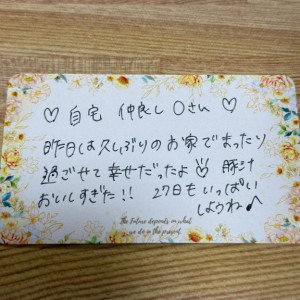 ♡ 自宅 仲良し Oさん ♡
昨日は久しぶりのお家でまったり
過ごせて幸せだったよ 豚汁
おいしすぎた!! 27日もいっぱい
しようね♪
The Future depends on what
we do in the present.